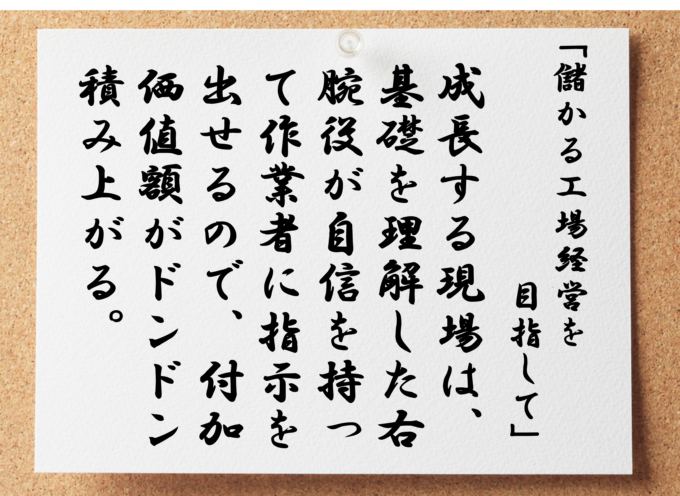 「儲かる工場経営を
目指して」
成長する現場は、
基礎を理解した右
腕役が自信を持っ
て作業者に指示を
出せるので、付加
価値額がドンドン
積み上がる。